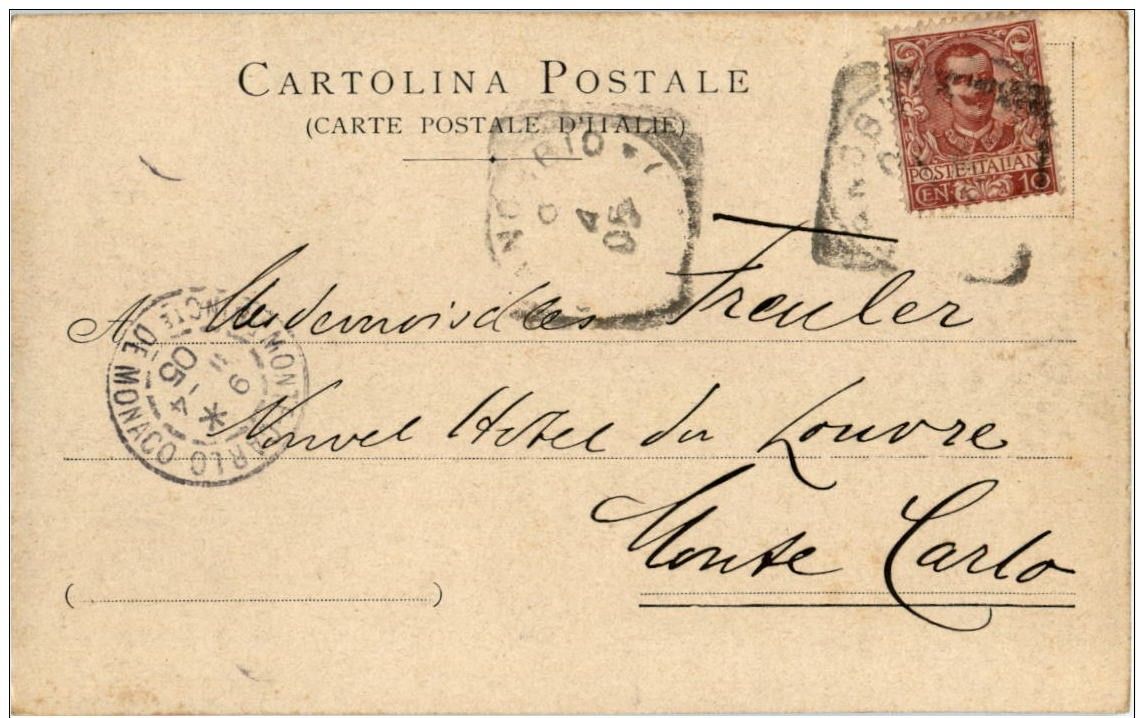 CARTOLINA POSTALE
(CARTE POSTALE D'ITALIE)
POSTE·ITALIANE
CEN 10
4
05
A Mesdemoiselles Freuler
Nouvel Hôtel du Louvre
Monte Carlo
MONTE CARLO
PCTE DE MONACO
9
4
05